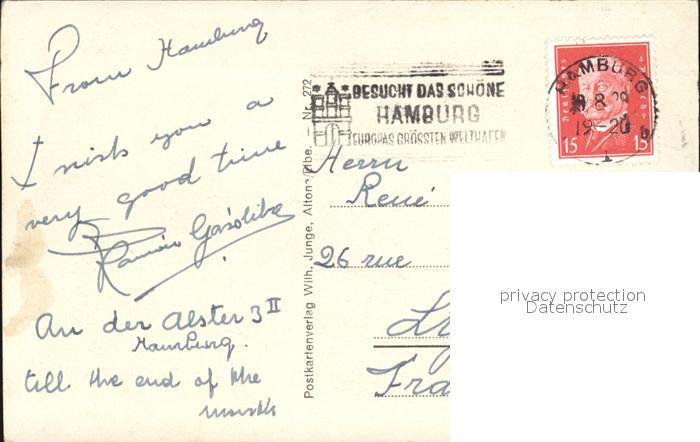 From Hamburg
I wish you a
very good time
Ramón
An der Alster 3 II
Hamburg.
till the end of the
month
Postkartenverlag Wilh. Junge, Altona/Elbe. — Nr. 272
BESUCHT DAS SCHÖNE
HAMBURG
EUROPAS GRÖSSTEN WELTHAFEN
HAMBURG
8.29
19-20
1
15 15
Herrn
René
26 rue
Fra
privacy protection
Datenschutz